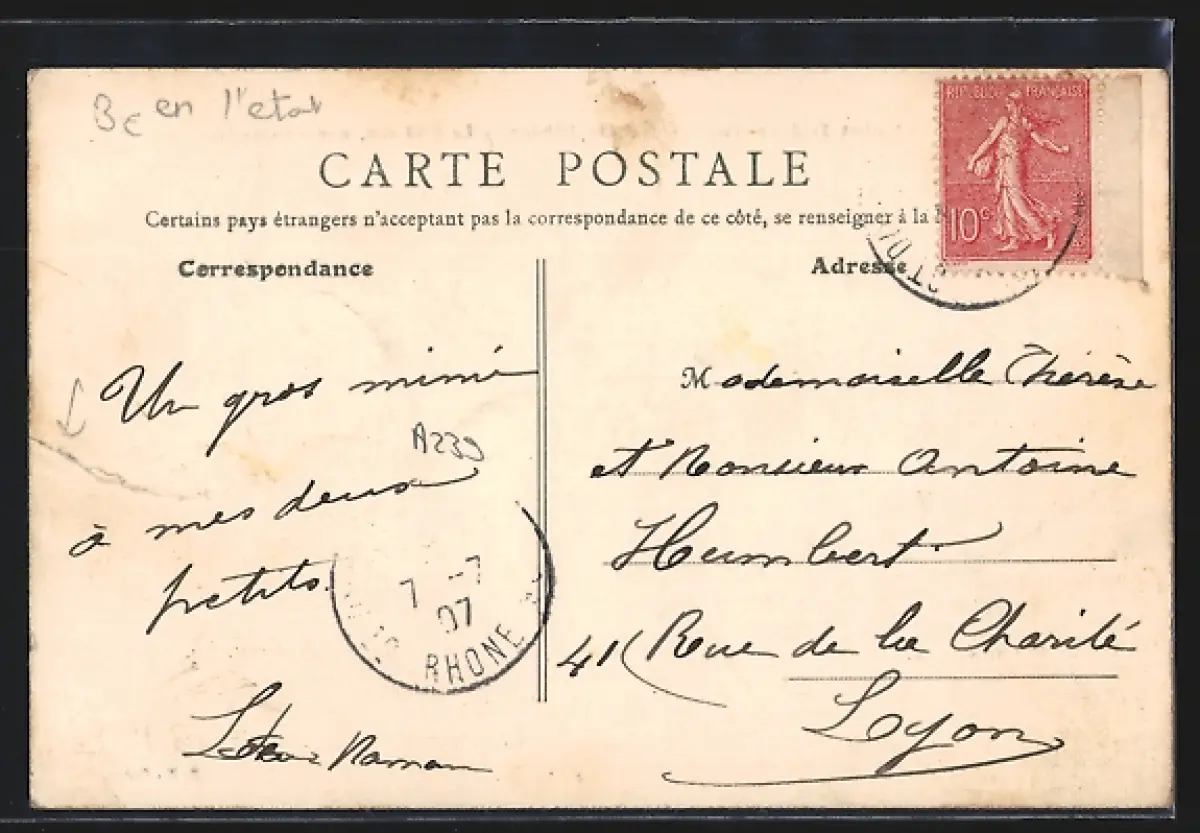 Bc en l'etat
CARTE POSTALE
Certains pays étrangers n'acceptant pas la correspondance de ce côté, se renseigner à la
Correspondance
Adresse
REPUBLIQUE FRANÇAISE
10c
Un gros mimi
A239
à mes deux
petits.
7 -7
07
RHONE
Maman
Mademoiselle Thérèse
et Monsieur Antoine
Humbert.
41 Rue de la Charité
Lyon